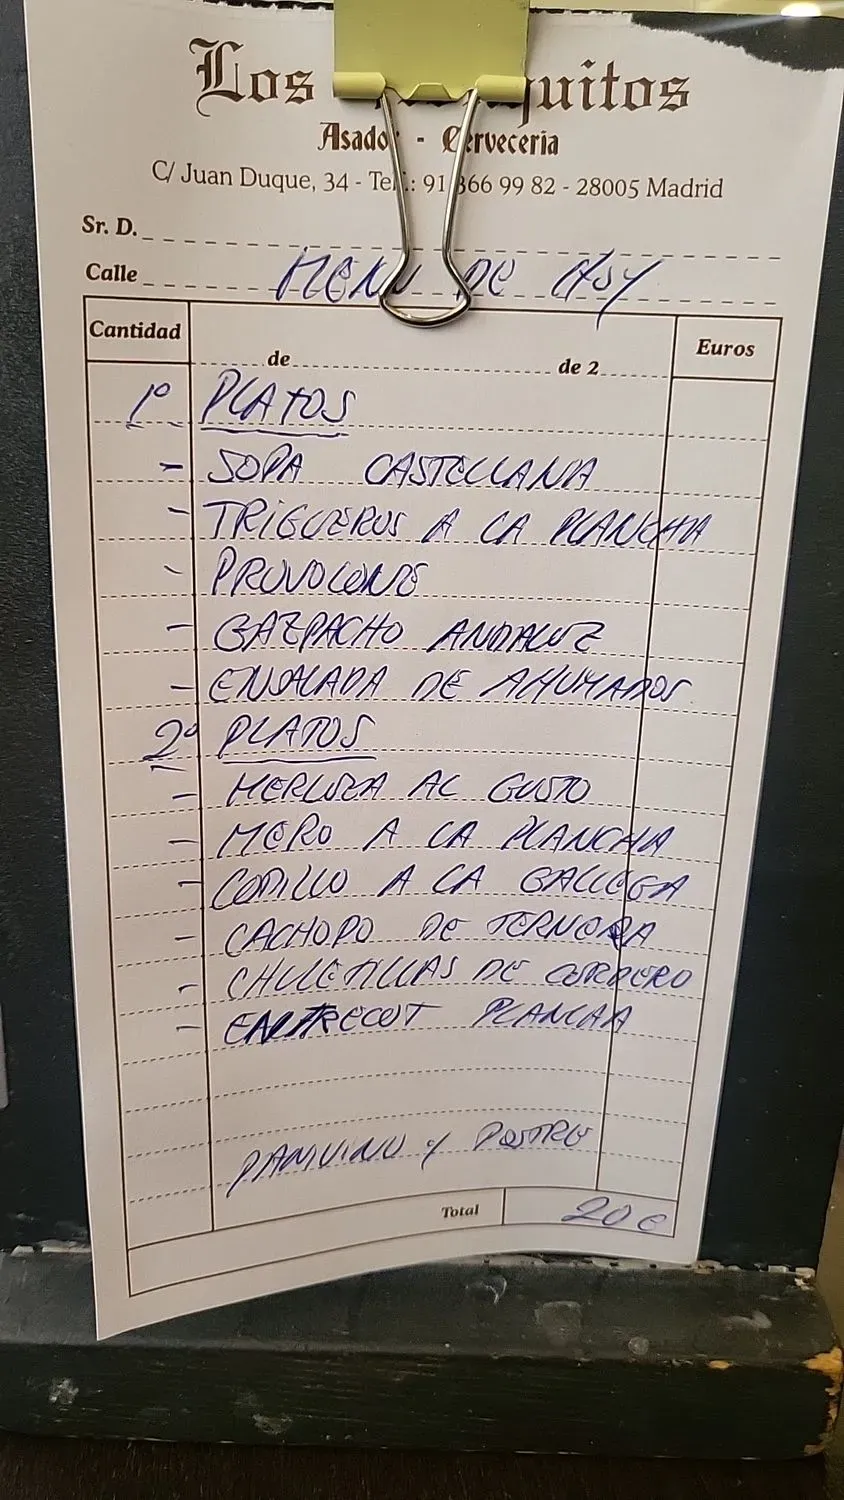 Los
Asador - Cervecería
C/ Juan Duque, 34 - Tel.: 91 366 99 82 - 28005 Madrid
Sr. D.
Calle MENU DE HOY
Cantidad de de 2 Euros
1º PLATOS
- SOPA CASTELLANA
- TRIGUEROS A LA PLANCHA
- PROVOLONE
- GAZPACHO ANDALUZ
- ENSALADA DE AHUMADOS
2º PLATOS
- MERLUZA AL GUSTO
- MERO A LA PLANCHA
- CODILLO A LA GALLEGA
- CACHOPO DE TERNERA
- CHULETILLAS DE CORDERO
- ENTRECOT PLANCHA
PAN VINO Y POSTRE
Total 20 €